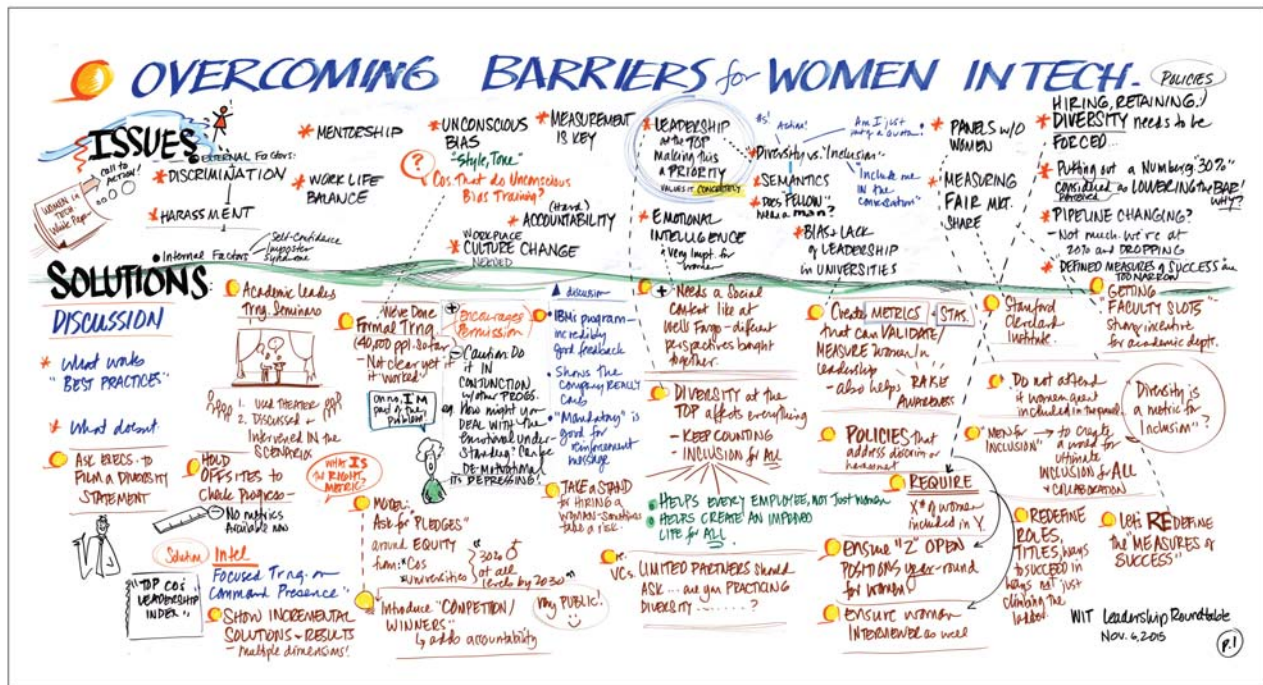 OVERCOMING BARRIERS for WOMEN IN TECH.
POLICIES
ISSUES
CALL TO ACTION!
WOMEN in TECH:
White Paper
EXTERNAL Factors:
* DISCRIMINATION
* HARASSMENT
• Internal Factors
Self-Confidence
Imposter
Syndrome
* MENTORSHIP
* WORK LIFE
BALANCE
* UNCONSCIOUS
BIAS
"Style, Tone"
?
Cos That do Unconscious
Bias Training?
* MEASUREMENT
IS KEY
(Hard)
* ACCOUNTABILITY
WORKPLACE
* CULTURE CHANGE
NEEDED
* LEADERSHIP
at the TOP
making this
a PRIORITY
VALUES IT CONCRETELY
* EMOTIONAL
INTELLIGENCE
a Very Impt. for
women
Action!
Am I just
a Quota
* Diversity vs. "Inclusion"
"Include me
in the
conversation"
* SEMANTICS
* Does FELLOW
need a man?
* BIAS & LACK
of LEADERSHIP
in UNIVERSITIES
* PANELS W/O
WOMEN
* MEASURING
FAIR MKT.
SHARE
HIRING, RETAINING,
* DIVERSITY needs to be
FORCED...
* Putting out a Number "30%"
considered as LOWERING the BAR!
perceived
WHY?
* PIPELINE CHANGING?
- Not much we're at
20% and DROPPING
* "DEFINED MEASURES of SUCCESS" are
TOO NARROW
SOLUTIONS:
DISCUSSION
* What works
"BEST PRACTICES"
* What doesn't
ASK EXECS. to
FILM a DIVERSITY
STATEMENT
Academic Leaders
Trng. Seminars
1. USED THEATER
2. DISCUSSED +
INTERVENED IN THE
SCENARIOS
HOLD
OFFSITES to
Check Progress-
- No metrics
Available now
Solution
"TOP COS.
LEADERSHIP
INDEX"
Intel
Focused Trng. on
"Command Presence"
SHOW INCREMENTAL
SOLUTIONS + RESULTS
- multiple dimensions!
We've Done
Formal Trng.
(40,000 ppl. so far)
- Not clear yet if
it worked.
Oh no, I'M
part of the
problem!
WHAT IS
the RIGHT
METRIC?
+
Encourages
Permission
- Caution: Do
it IN
CONJUNCTION
w/other PROGS.
eg. How might you
DEAL WITH the
Emotional Under-
Standing? Can be
DE-MOTIVATIONAL
ITS DEPRESSING!
MODEL:
"Ask for PLEDGES"
around EQUITY
from: * Cos
* Universities
30%
at all
levels by 2030"
Introduce "COMPETITION/
WINNERS"
adds accountability
Very PUBLIC.
discussion
• IBM: program-
incredibly
good feedback
• Shows the
Company REALLY
Cares
• "Mandatory" is
good for
reinforcement
message
TAKE a STAND
for HIRING a
WOMAN - Sometimes
take a risk.
+ Needs a Social
Context like at
Wells Fargo - different
perspectives brought
together.
DIVERSITY at the
TOP affects everything
- KEEP COUNTING
- INCLUSION for ALL
• HELPS EVERY EMPLOYEE, NOT Just women
• HELPS CREATE AN IMPROVED
LIFE for ALL.
re.
VCs.
LIMITED PARTNERS Should
ASK ... are you PRACTICING
DIVERSITY ........?
Create METRICS + STATS.
that can VALIDATE/
MEASURE Women in
Leadership
- also helps RAISE
AWARENESS
POLICIES that
address discrim. or
harassment
REQUIRE
X# of women
included in Y.
Ensure "Z" OPEN
POSITIONS year-round
for women
Ensure woman
INTERVIEWER as well
Stanford
Clayman
Institute.
Do not attend
if women aren't
included in the panel.
"MEN for → to create
INCLUSION" a world for
ultimate
INCLUSION for ALL
+ COLLABORATION
REDEFINE
ROLES,
TITLES, ways
to SUCCEED in
ways not just
climbing the
ladder.
GETTING
"FACULTY SLOTS"
Strong incentive
for academic dept.
Diversity is
a metric for
Inclusion"?
Let's REDEFINE
the "MEASURES of
SUCCESS"
WIT Leadership Roundtable
Nov. 6, 2015
P.1